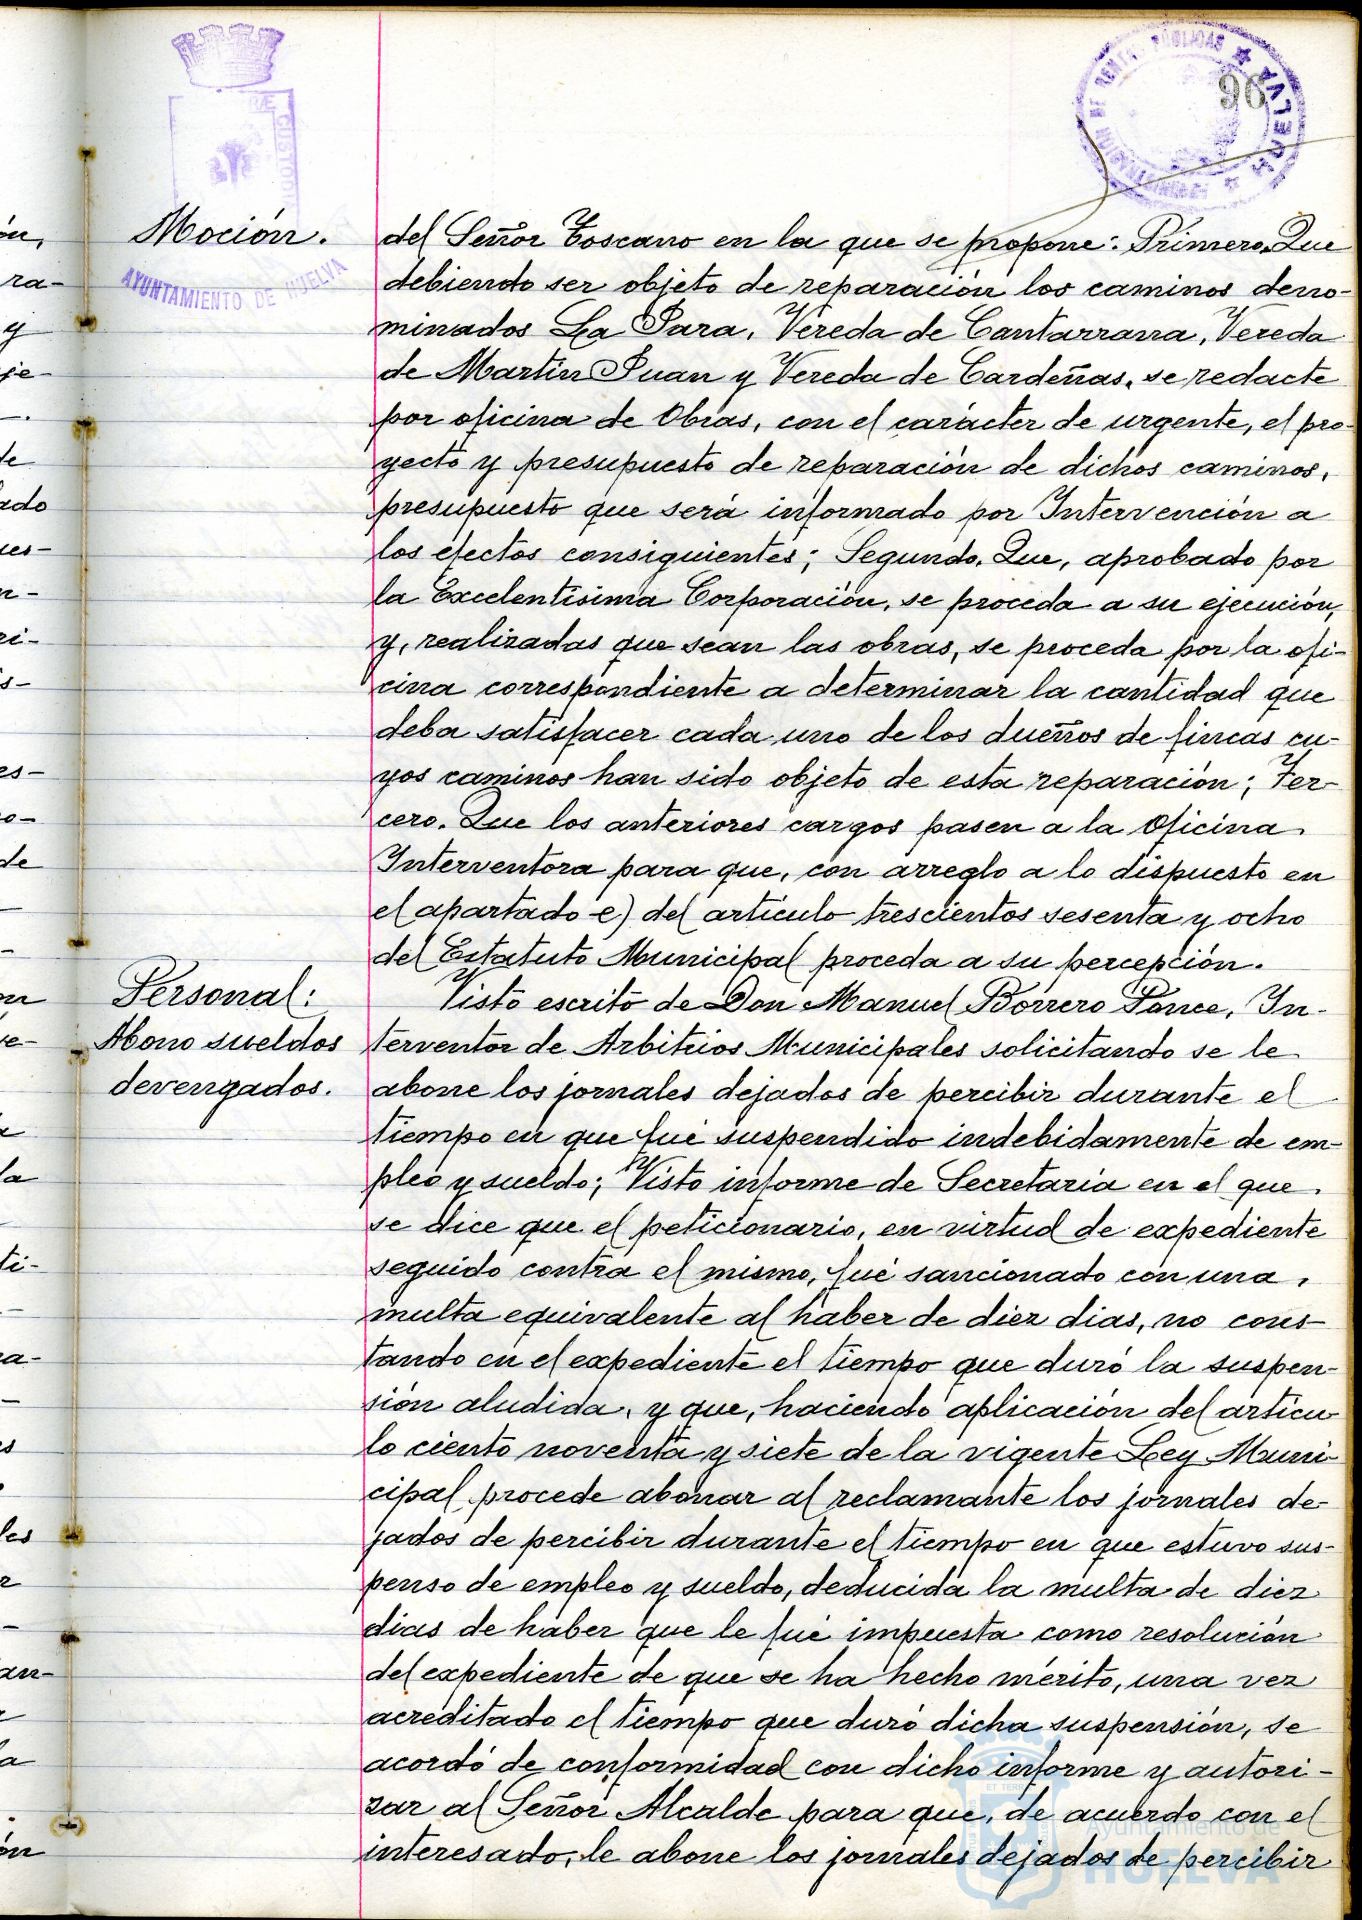 96
Moción.
AYUNTAMIENTO DE HUELVA
del Señor Toscano en la que se propone: Primero. Que
debiendo ser objeto de reparación los caminos deno-
minados La Para, Vereda de Cantarrana, Vereda
de Martin Juan y Vereda de Cardeñas, se redacte
por oficina de Obras, con el carácter de urgente, el pro-
yecto y presupuesto de reparación de dichos caminos,
presupuesto que será informado por Intervención a
los efectos consiguientes; Segundo. Que, aprobado por
la Excelentísima Corporación, se proceda a su ejecución,
y, realizadas que sean las obras, se proceda por la ofi-
cina correspondiente a determinar la cantidad que
deba satisfacer cada uno de los dueños de fincas cu-
yos caminos han sido objeto de esta reparación; Ter-
cero. Que los anteriores cargos pasen a la Oficina
Interventora para que, con arreglo a lo dispuesto en
el apartado e) del artículo trescientos sesenta y ocho
del Estatuto Municipal proceda a su percepción.
Personal:
Abono sueldos
devengados.
Visto escrito de Don Manuel Borrero Ponce, In-
terventor de Arbitrios Municipales solicitando se le
abone los jornales dejados de percibir durante el
tiempo en que fué suspendido indebidamente de em-
pleo y sueldo; Visto informe de Secretaría en el que
se dice que el peticionario, en virtud de expediente
seguido contra el mismo, fué sancionado con una
multa equivalente al haber de diez dias, no cons-
tando en el expediente el tiempo que duró la suspen-
sión aludida, y que, haciendo aplicación del articu-
lo ciento noventa y siete de la vigente Ley Muni-
cipal, procede abonar al reclamante los jornales de-
jados de percibir durante el tiempo en que estuvo sus-
penso de empleo y sueldo, deducida la multa de diez
dias de haber que le fué impuesta como resolución
del expediente de que se ha hecho mérito, una vez
acreditado el tiempo que duró dicha suspensión, se
acordó de conformidad con dicho informe y autori-
zar al Señor Alcalde para que, de acuerdo con el
interesado, le abone los jornales dejados de percibir
Ayuntamiento de
HUELVA